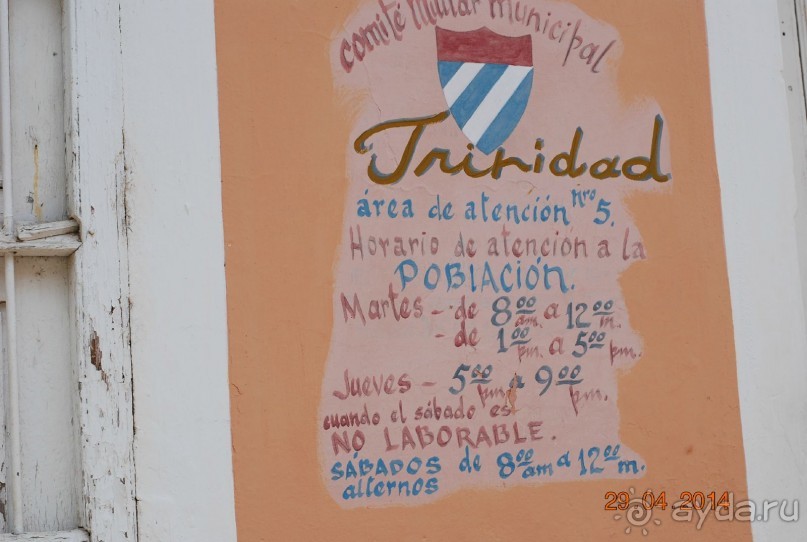 comité Militar Municipal
Trinidad
área de atención Nro 5.
Horario de atención a la
POBlACIÓN.
Martes - de 8 00 am. a 12 00 m.
- de 1 00 pm. a 5 00 pm.
Jueves - 5 00 pm a 9 00 pm.
cuando el sábado es
NO LABORABLE.
SÁBADOS de 8 00 am a 12 00 m.
alternos
29.04.2014
ayda.ru